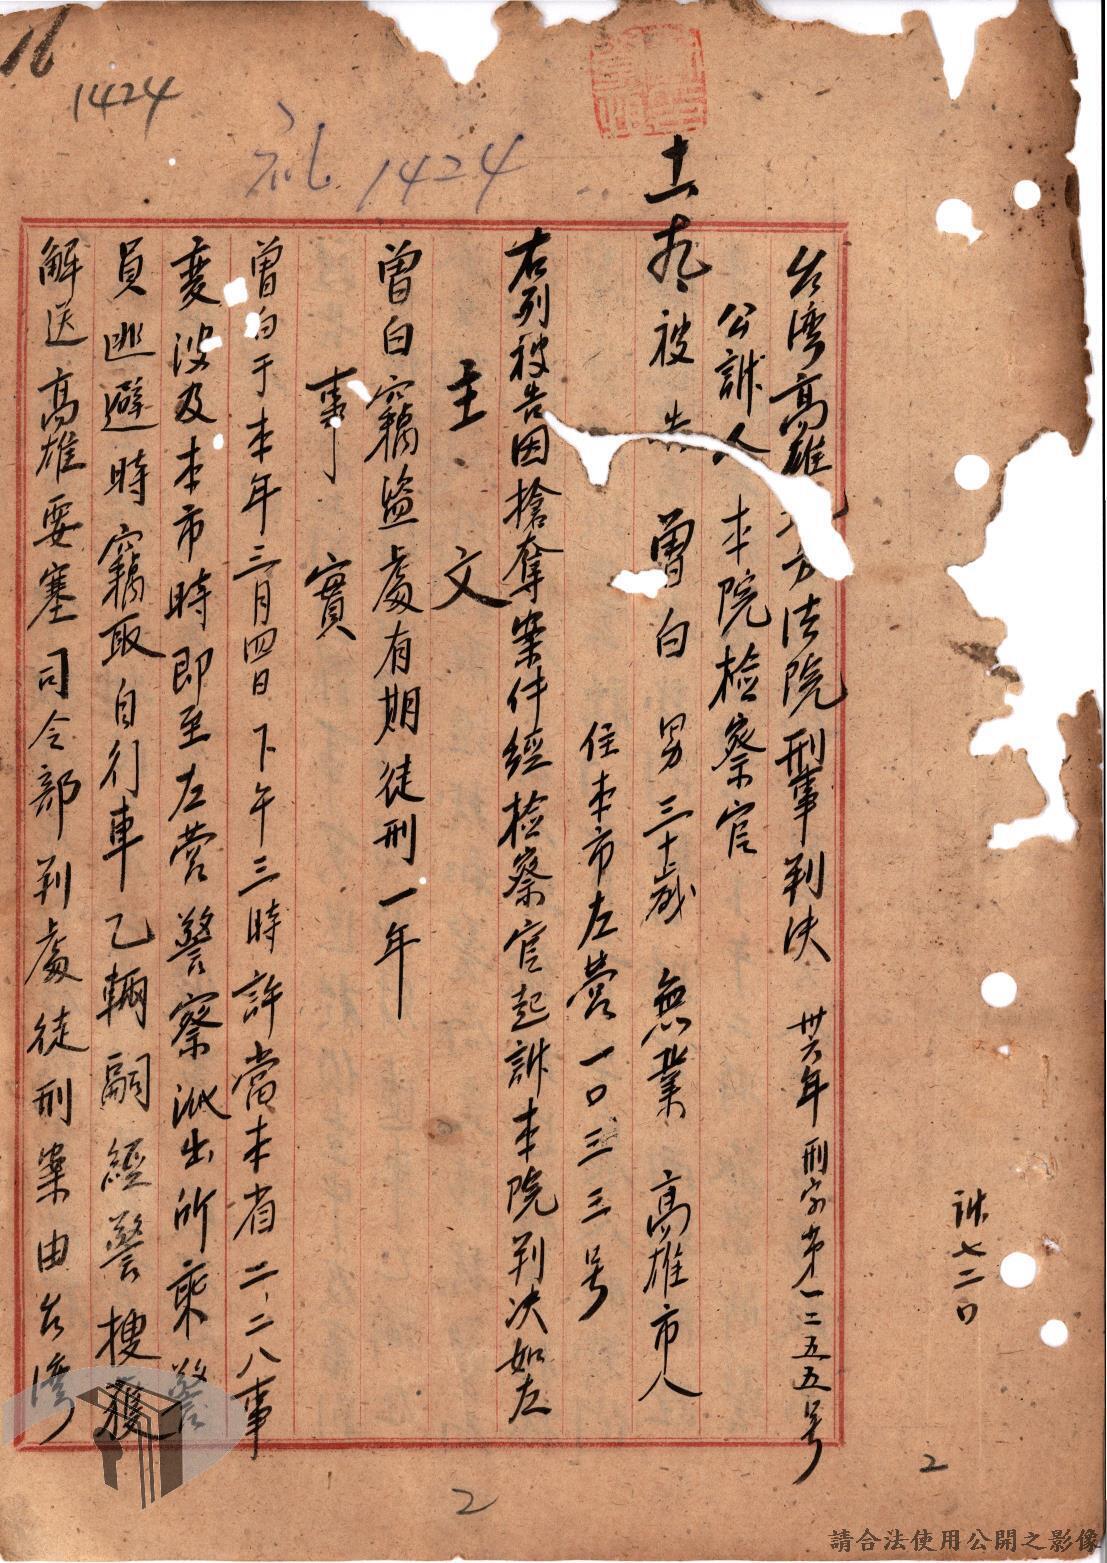 16
1424
1424
訴七二〇
台灣高雄地方法院刑事判決 卅六年刑字第一二五五号
公訴人 本院檢察官
被告 曾白 男 三十歲 無業 高雄市人
住本市左營一〇三三号
右列被告因搶奪案件經檢察官起訴本院判決如左
主文
曾白竊盜處有期徒刑一年
事實
曾白于本年三月四日下午三時許當本省二、二八事
變波及本市時即至左營警察派出所乘警
員逃避時竊取自行車乙輛嗣經警搜獲
解送高雄要塞司令部判處徒刑案由台灣
2
2
請合法使用公開之影像